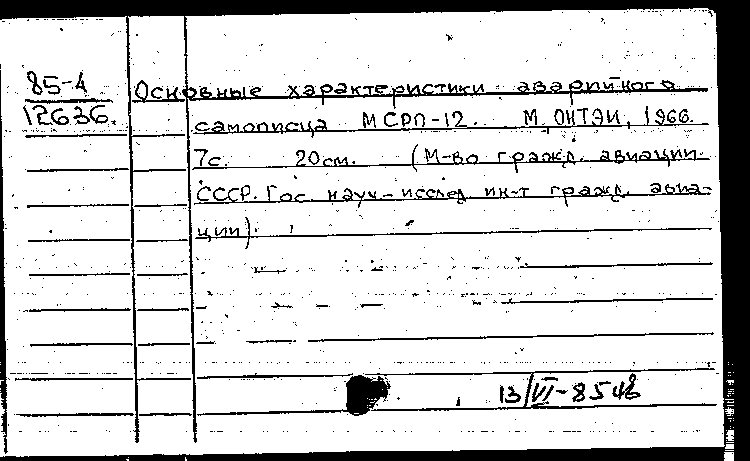 85-4
12636.
Основные характеристики аварийного
самописца МСРП-12. М, ОНТЭИ, 1966.
7с. 20см. (М-во гражд. авиации
СССР. Гос. науч-исслед ин-т гражд. авиа-
ции).
13/VI-85